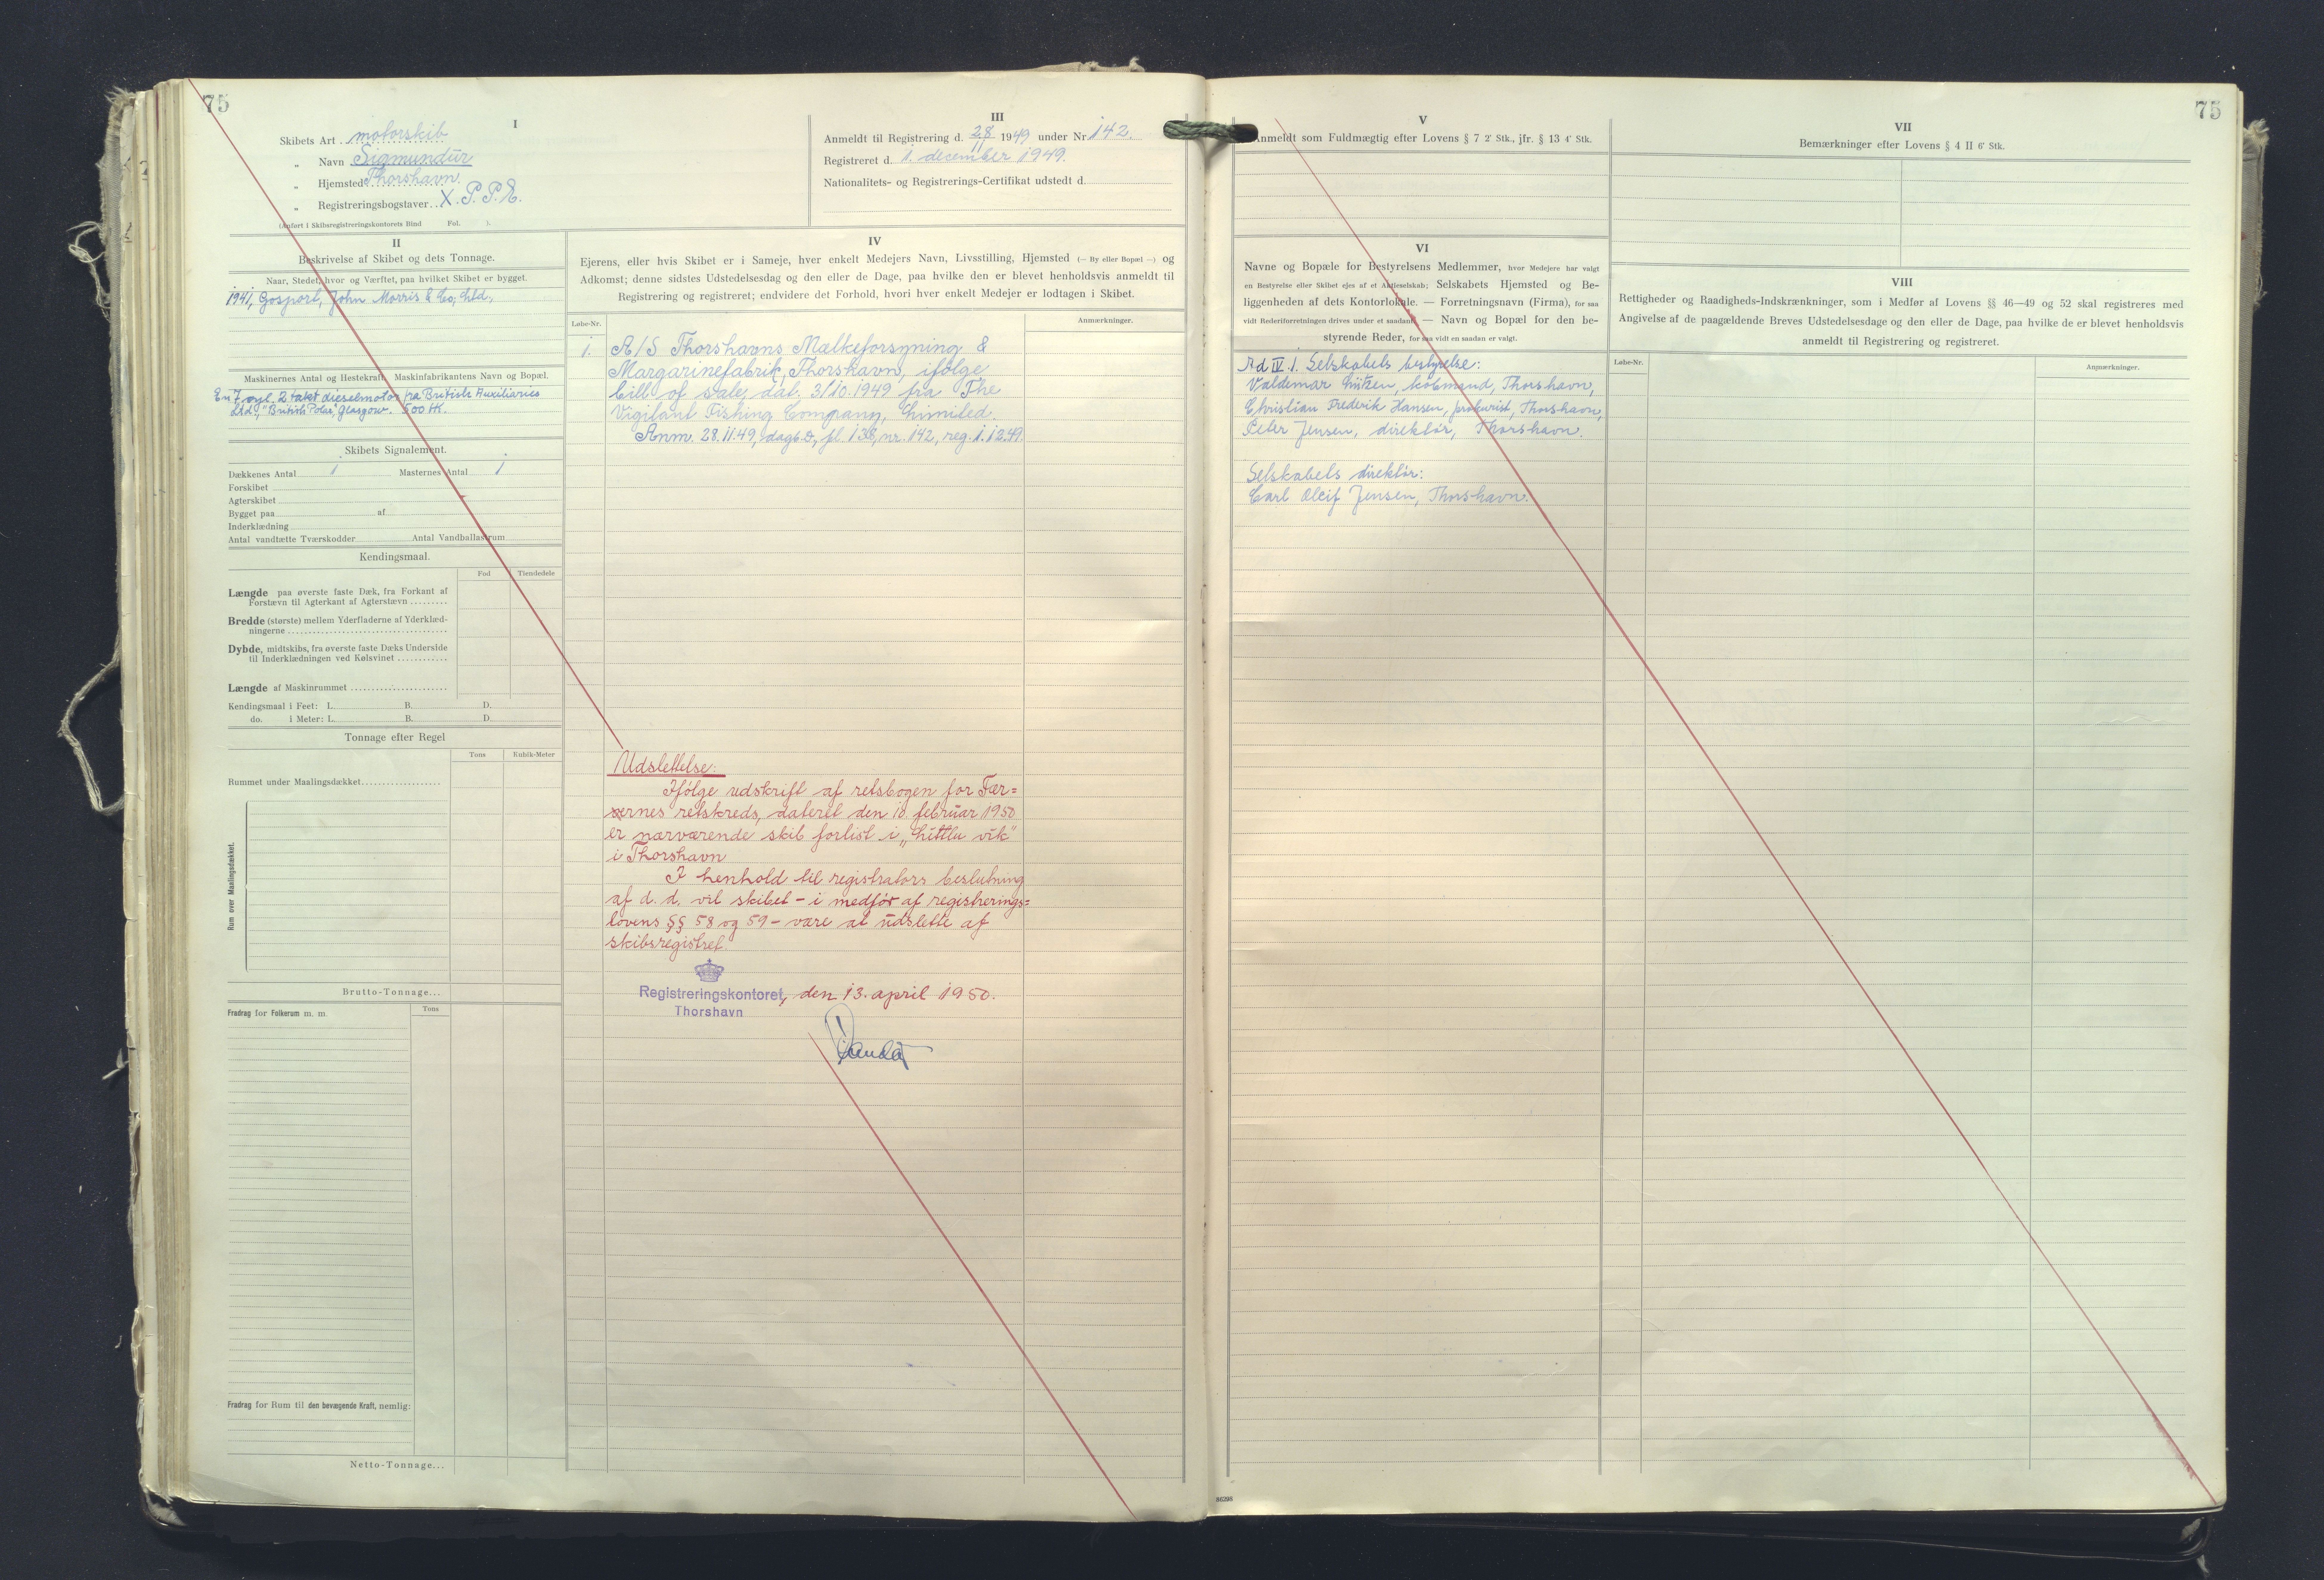 75
I
Skibets Art motorskib
„ Navn Sigmundur
„ Hjemsted Thorshavn.
„ Registreringsbogstaver X.P.P.E.
(Anført i Skibsregistreringskontorets Bind Fol. ).
III
Anmeldt til Registrering d. 28/11 1949 under Nr. 142.
Registreret d. 1. december 1949.
Nationalitets- og Registrerings-Certifikat udstedt d.
II
Beskrivelse af Skibet og dets Tonnage.
Naar, Stedet, hvor og Værftet, paa hvilket Skibet er bygget.
1941, Gosport, John Morris & Co, Ltd.
Maskinernes Antal og Hestekraft, Maskinfabrikantens Navn og Bopæl.
En 7 cyl. 2 takt dieselmotor fra British Auxiliaries
Ltd., "British Polar", Glasgow. 500 HK.
Skibets Signalement.
Dækkenes Antal 1 Masternes Antal 1
Forskibet
Agterskibet
Bygget paa af
Inderklædning
Antal vandtætte Tværskodder Antal Vandballastrum
Kendingsmaal.
Fod Tiendedele
Længde paa øverste faste Dæk, fra Forkant af
Forstævn til Agterkant af Agterstævn
Bredde (største) mellem Yderfladerne af Yderklæd-
ningerne
Dybde, midtskibs, fra øverste faste Dæks Underside
til Inderklædningen ved Kølsvinet
Længde af Maskinrummet
Kendingsmaal i Feet: L. B. D.
do. i Meter: L. B. D.
Tonnage efter Regel
Tons Kubik-Meter
Rummet under Maalingsdækket
Rum over Maalingsdækket.
Brutto-Tonnage...
Fradrag for Folkerum m. m.
Tons
Fradrag for Rum til den bevægende Kraft, nemlig:
Netto-Tonnage...
IV
Ejerens, eller hvis Skibet er i Sameje, hver enkelt Medejers Navn, Livsstilling, Hjemsted (— By eller Bopæl —) og
Adkomst; denne sidstes Udstedelsesdag og den eller de Dage, paa hvilke den er blevet henholdsvis anmeldt til
Registrering og registreret; endvidere det Forhold, hvori hver enkelt Medejer er lodtagen i Skibet.
Løbe-Nr.
Anmærkninger.
1. A/S Thorshavns Mælkeforsyning &
Margarinefabrik, Thorshavn, ifølge
bill of sale, dat. 31/10.1949 fra The
Vigilant Fishing Company, Limited.
Anm. 28.11.49, dagb. D, fl. 138, nr. 142, reg. 1.12.49.
Udslettelse:
Ifølge udskrift af retsbogen for Fær=
øernes retskreds, dateret den 10. februar 1950
er nærværende skib forlist i „híttlu vík"
i Thorshavn
I henhold til registrators beslutning
af d. d. vil skibet - i medfør af registrerings=
lovens §§ 58 og 59 - være at udslette af
skibsregistret.
Registreringskontoret, den 13. april 1950.
Thorshavn
75
V
Anmeldt som Fuldmægtig efter Lovens § 7 2' Stk., jfr. § 13 4' Stk.
VI
Navne og Bopæle for Bestyrelsens Medlemmer, hvor Medejere har valgt
en Bestyrelse eller Skibet ejes af et Aktieselskab; Selskabets Hjemsted og Be-
liggenheden af dets Kontorlokale. — Forretningsnavn (Firma), for saa
vidt Rederiforretningen drives under et saadant. — Navn og Bopæl for den be-
styrende Reder, for saa vidt en saadan er valgt.
Ad IV. 1. Selskabets bestyrelse:
Valdemar Lützen, købmand, Thorshavn,
Christian Frederik Hansen, prokurist, Thorshavn,
Peter Jensen, direktør, Thorshavn.
Selskabets direktør:
Carl Oleif Jensen, Thorshavn.
VII
Bemærkninger efter Lovens § 4 II 6' Stk.
VIII
Rettigheder og Raadigheds-Indskrænkninger, som i Medfør af Lovens §§ 46—49 og 52 skal registreres med
Angivelse af de paagældende Breves Udstedelsesdage og den eller de Dage, paa hvilke de er blevet henholdsvis
anmeldt til Registrering og registreret.
Løbe-Nr.
Anmærkninger.
86298